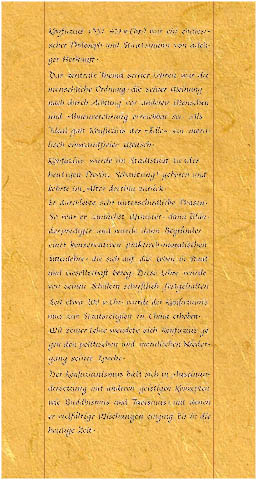 Konfuzius (551-479 v. Chr.) war ein chinesi-
scher Philosoph und Staatsmann von adeli-
ger Herkunft.
Das zentrale Thema seiner Lehren war die
menschliche Ordnung die seiner Meinung
nach durch Achtung vor anderen Menschen
und Ahnenverehrung erreichbar sei. Als
Ideal galt Konfuzius der "Edle" ein mora-
lisch einwandfreier Mensch.
Konfuzius wurde im Stadtstaat
heutigen geboren und
kehrte im Alter dorthin zurück.
Er durchlebte sehr unterschiedliche Phasen.
So war er zunächst Minister dann
und wurde dann Begründer
einer konservativen praktisch-moralischen
Sittenlehre die sich auf das Leben in Staat
und Gesellschaft bezog. Diese Lehre wurde
von seinen Schülern schriftlich festgehalten
Seit etwa 200 v. Chr. wurde der Konfuzianis-
mus zur Staatsreligion in China erhoben.
Mit seiner Lehre wendete sich Konfuzius ge-
gen den politischen und moralischen Nieder-
gang seiner Epoche.
Der Konfuzianismus hält sich in Auseinan-
dersetzung mit anderen geistigen Konzepten
wie Buddhismus und Taoismus mit denen
er vielfältige Mischungen einging bis in die
heutige Zeit.